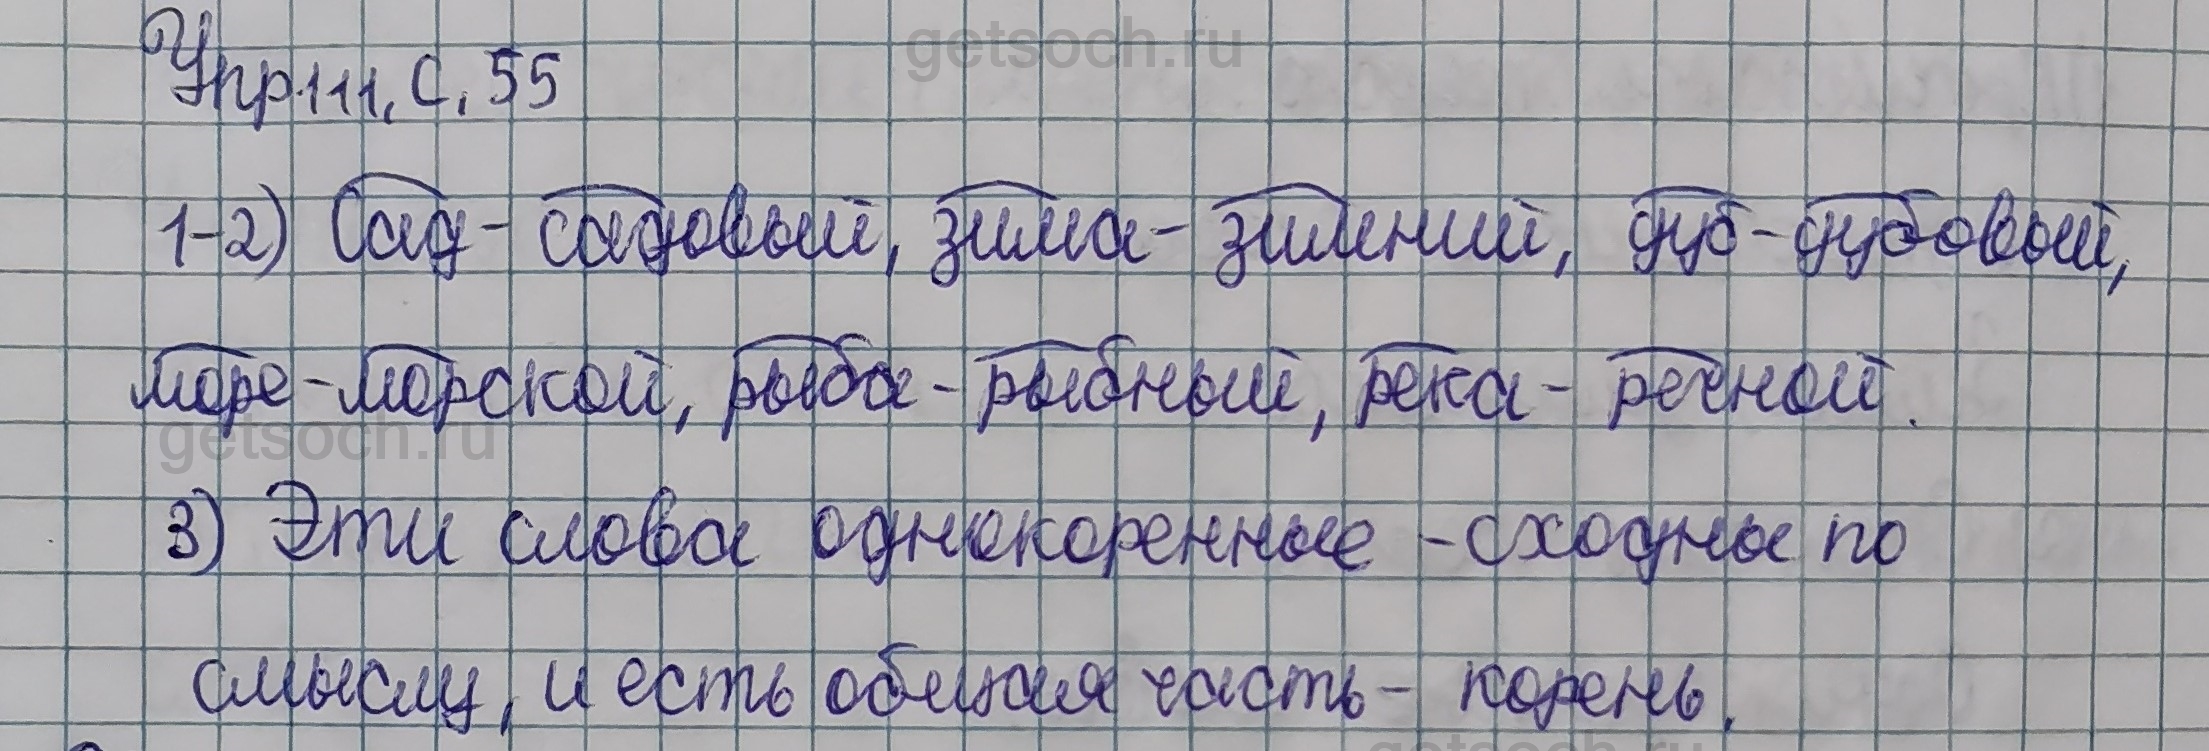 getsoch.ru
Упр.111, с. 55
1-2) Сад - садовый, зима - зимний, дуб - дубовый,
море - морской, рыба - рыбный, река - речной.
getsoch.ru
3) Эти слова однокоренные - сходны по
смыслу, и есть общая часть - корень.
getsoch.ru